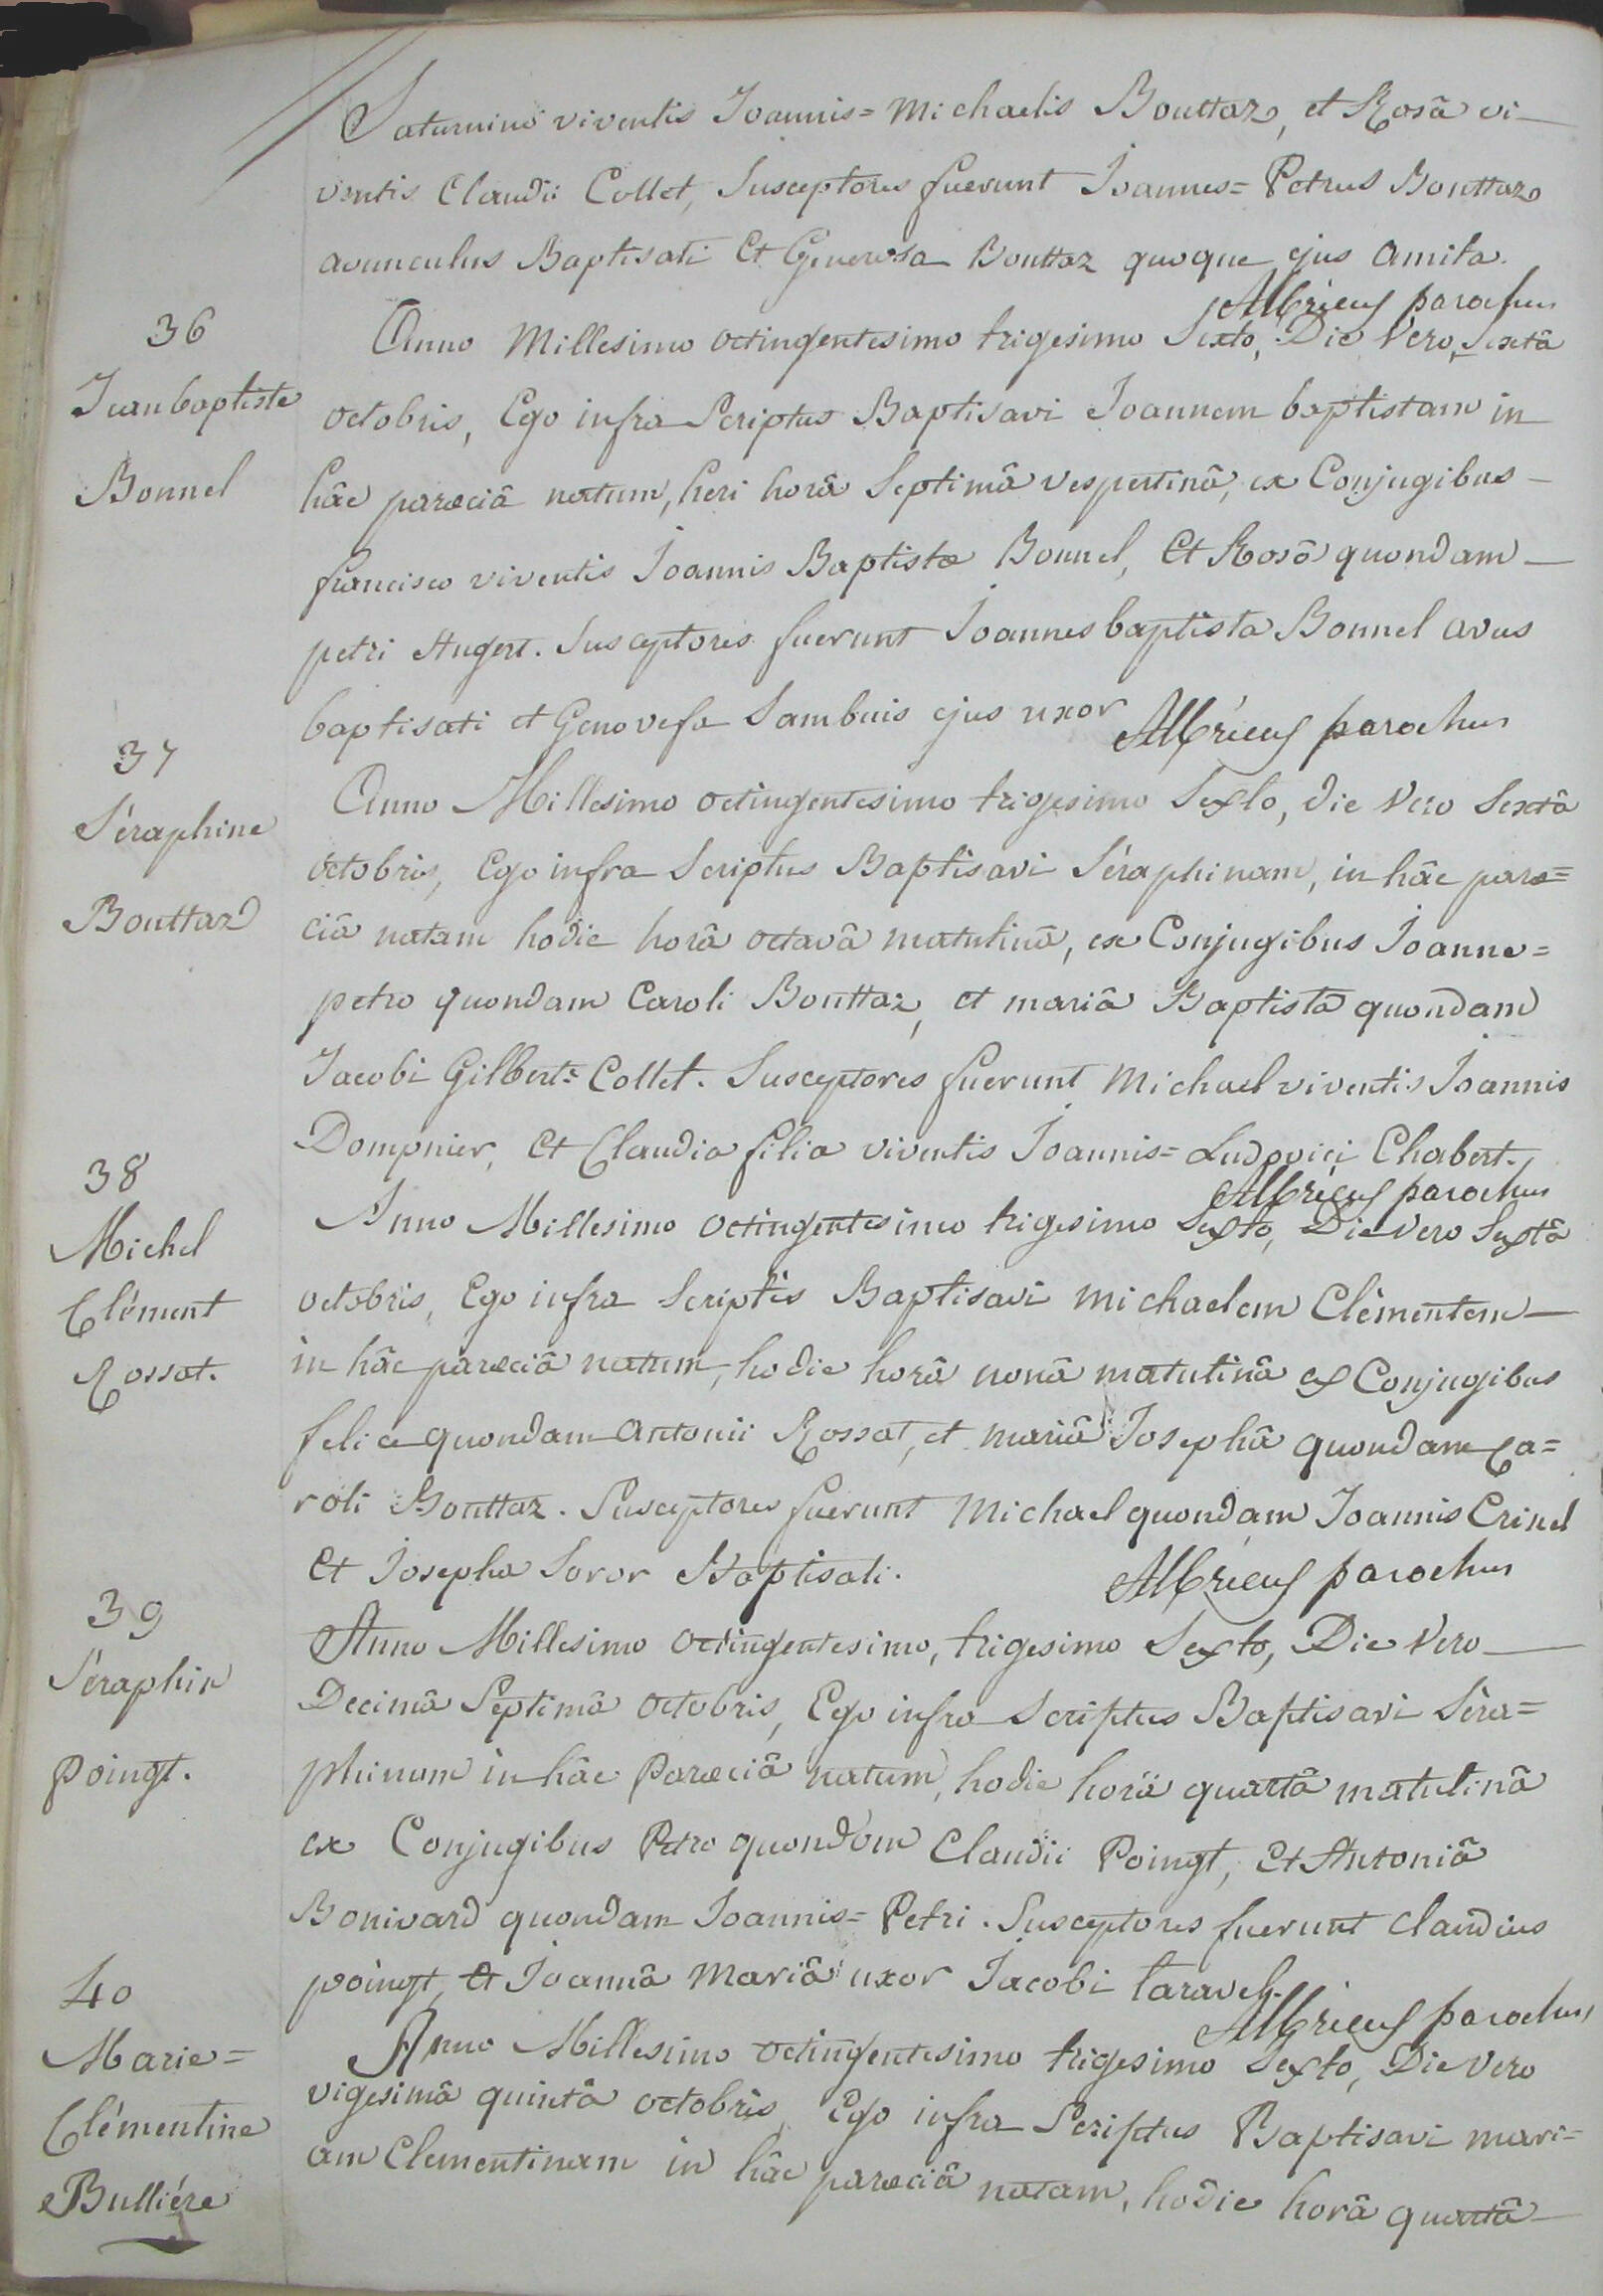 Saturnino viventis Joannis= Michaelis Bouttaz, et Rosâ vi-
ventis Claudii Collet, Susceptores fuerunt Joannes= Petrus Bouttaz
avunculus Baptisati Et Generosa Bouttaz quoque ejus amita.
Albrieux parochus
36
Jeanbaptiste
Bonnel
Anno Millesimo octingentesimo trigesimo Sexto, Die Vero, Sextâ
octobris, Ego infra Scriptus Baptisavi Joannem baptistam in
hâc parœciâ natum, heri horâ Septimâ vespertinâ, ex Conjugibus -
francisco viventis Joannis Baptistæ Bonnel, Et Rosâ quondam -
petri Augert. Susceptores fuerunt Joannes baptista Bonnel avus
baptisati et Genovefa Sambuis ejus uxor
Albrieux parochus
37
Séraphine
Bouttaz
Anno Millesimo octingentesimo trigesimo Sexto, die Vero Sextâ
octobris, Ego infra Scriptus Baptisavi Séraphinam, in hâc parœ=
ciâ natam hodie horâ octavâ matutinâ, ex Conjugibus Joanne=
petro quondam Caroli Bouttaz, et mariâ Baptistâ quondam
Jacobi Gilbert= Collet. Susceptores fuerunt Michael viventis Joannis
Dompnier, Et Claudia filia viventis Joannis= Ludovici Chabert.
Albrieux parochus
38
Michel
Clément
Rossat.
Anno Millesimo octingentesimo trigesimo Sexto, Die vero Sextâ
octobris, Ego infra Scriptis Baptisavi Michaelem Clémentem -
in hâc parœciâ natum, hodie horâ nonâ matutinâ ex Conjugibus
felice quondam Antonii Rossat, et mariâ Josephâ quondam Ca=
roli Bouttaz. Susceptores fuerunt Michael quondam Joannis Crinel
Et Josepha Soror Baptisati.
Albrieux parochus
39
Séraphin
Poingt.
Anno Millesimo octingentesimo, trigesimo Sexto, Die Vero -
Decimâ Septimâ octobris, Ego infra Scriptus Baptisavi Séra=
phinum in hâc Parœciâ natum, hodie horâ quartâ matutinâ
ex Conjugibus Petro quondam Claudii Poingt, Et Antoniâ
Bonivard quondam Joannis= Petri. Susceptores fuerunt Claudius
poingt, Et Joannâ Mariâ uxor Jacobi taravel.
Albrieux parochus
40
Marie=
Clémentine
Bulliére
Anno Millesimo octingentesimo trigesimo Sexto, Die Vero
vigesimâ quintâ octobris, Ego infra Scriptus Baptisavi mari=
am Clementinam in hâc parœciâ natam, hodie horâ quartâ -